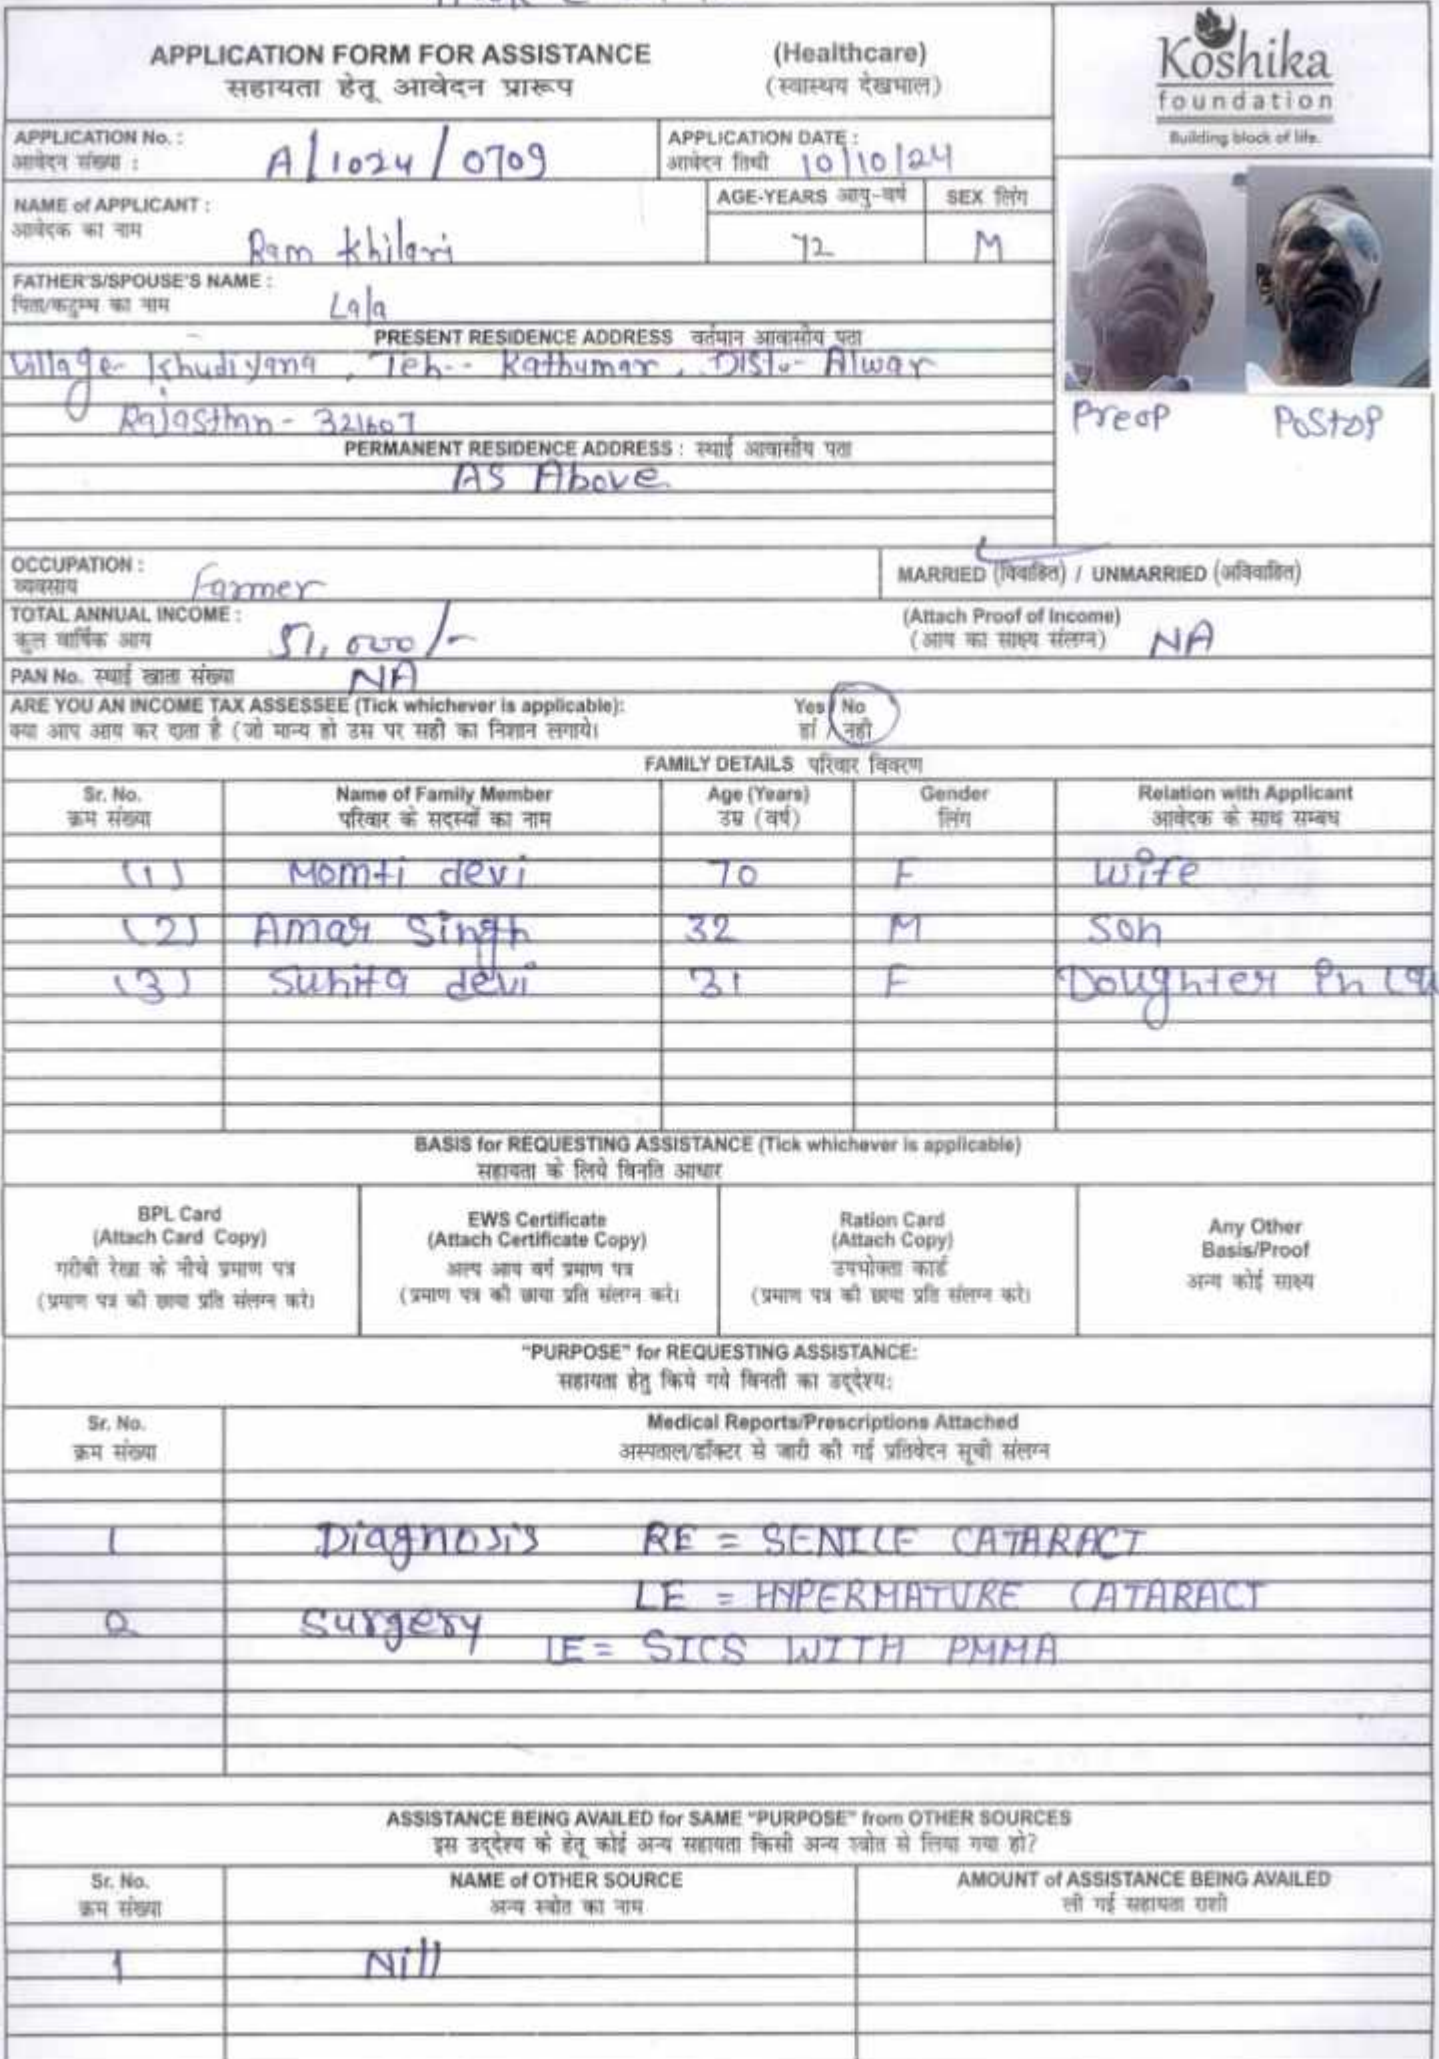 APPLICATION FORM FOR ASSISTANCE (Healthcare)
सहायता हेतू आवेदन प्रारूप (स्वास्थय देखभाल)
Koshika
foundation
Building block of life.
APPLICATION No. : APPLICATION DATE :
आवेदन संख्या : A/1024/0709 आवेदन तिथी 10/10/24
NAME of APPLICANT : AGE-YEARS आयु-वर्ष SEX लिंग
आवेदक का नाम Ram Khilari 72 M
FATHER'S/SPOUSE'S NAME :
पिता/कटुम्भ का नाम Lala
PRESENT RESIDENCE ADDRESS वर्तमान आवासीय पता
Village- Khudiyana, Teh-- Kathumar, Dist- Alwar
Rajasthan - 321607
Preop Postop
PERMANENT RESIDENCE ADDRESS : स्थाई आवासीय पता
As Above
OCCUPATION : MARRIED (विवाहित) / UNMARRIED (अविवाहित)
व्यवसाय Farmer
TOTAL ANNUAL INCOME : (Attach Proof of Income)
कुल वार्षिक आय 51,000/- (आय का साक्ष्य संलग्न) NA
PAN No. स्थाई खाता संख्या NA
ARE YOU AN INCOME TAX ASSESSEE (Tick whichever is applicable): Yes / No
क्या आप आय कर दाता है (जो मान्य हो उस पर सही का निशान लगाये। हां / नही
FAMILY DETAILS परिवार विवरण
Sr. No. Name of Family Member Age (Years) Gender Relation with Applicant
क्रम संख्या परिवार के सदस्यों का नाम उम्र (वर्ष) लिंग आवेदक के साथ सम्बध
(1) Momti devi 70 F wife
(2) Amar Singh 32 M Son
(3) Sunita devi 31 F Doughter in
BASIS for REQUESTING ASSISTANCE (Tick whichever is applicable)
सहायता के लिये विनति आधार
BPL Card
(Attach Card Copy)
गरीबी रेखा के नीचे प्रमाण पत्र
(प्रमाण पत्र की छाया प्रति संलग्न करे।
EWS Certificate
(Attach Certificate Copy)
अल्प आय वर्ग प्रमाण पत्र
(प्रमाण पत्र की छाया प्रति संलग्न करे।
Ration Card
(Attach Copy)
उपभोक्ता कार्ड
(प्रमाण पत्र की छाया प्रति संलग्न करे।
Any Other
Basis/Proof
अन्य कोई साक्ष्य
"PURPOSE" for REQUESTING ASSISTANCE:
सहायता हेतु किये गये विनती का उद्देश्य:
Sr. No. Medical Reports/Prescriptions Attached
क्रम संख्या अस्पताल/डॉक्टर से जारी की गई प्रतिवेदन सूची संलग्न
1 Diagnosis RE = SENILE CATARACT
LE = HYPERMATURE CATARACT
2 Surgery LE = SICS WITH PMMA
ASSISTANCE BEING AVAILED for SAME "PURPOSE" from OTHER SOURCES
इस उद्देश्य के हेतू कोई अन्य सहायता किसी अन्य स्त्रोत से लिया गया हो?
Sr. No. NAME of OTHER SOURCE AMOUNT of ASSISTANCE BEING AVAILED
क्रम संख्या अन्य स्त्रोत का नाम ली गई सहायता राशी
1 Nill